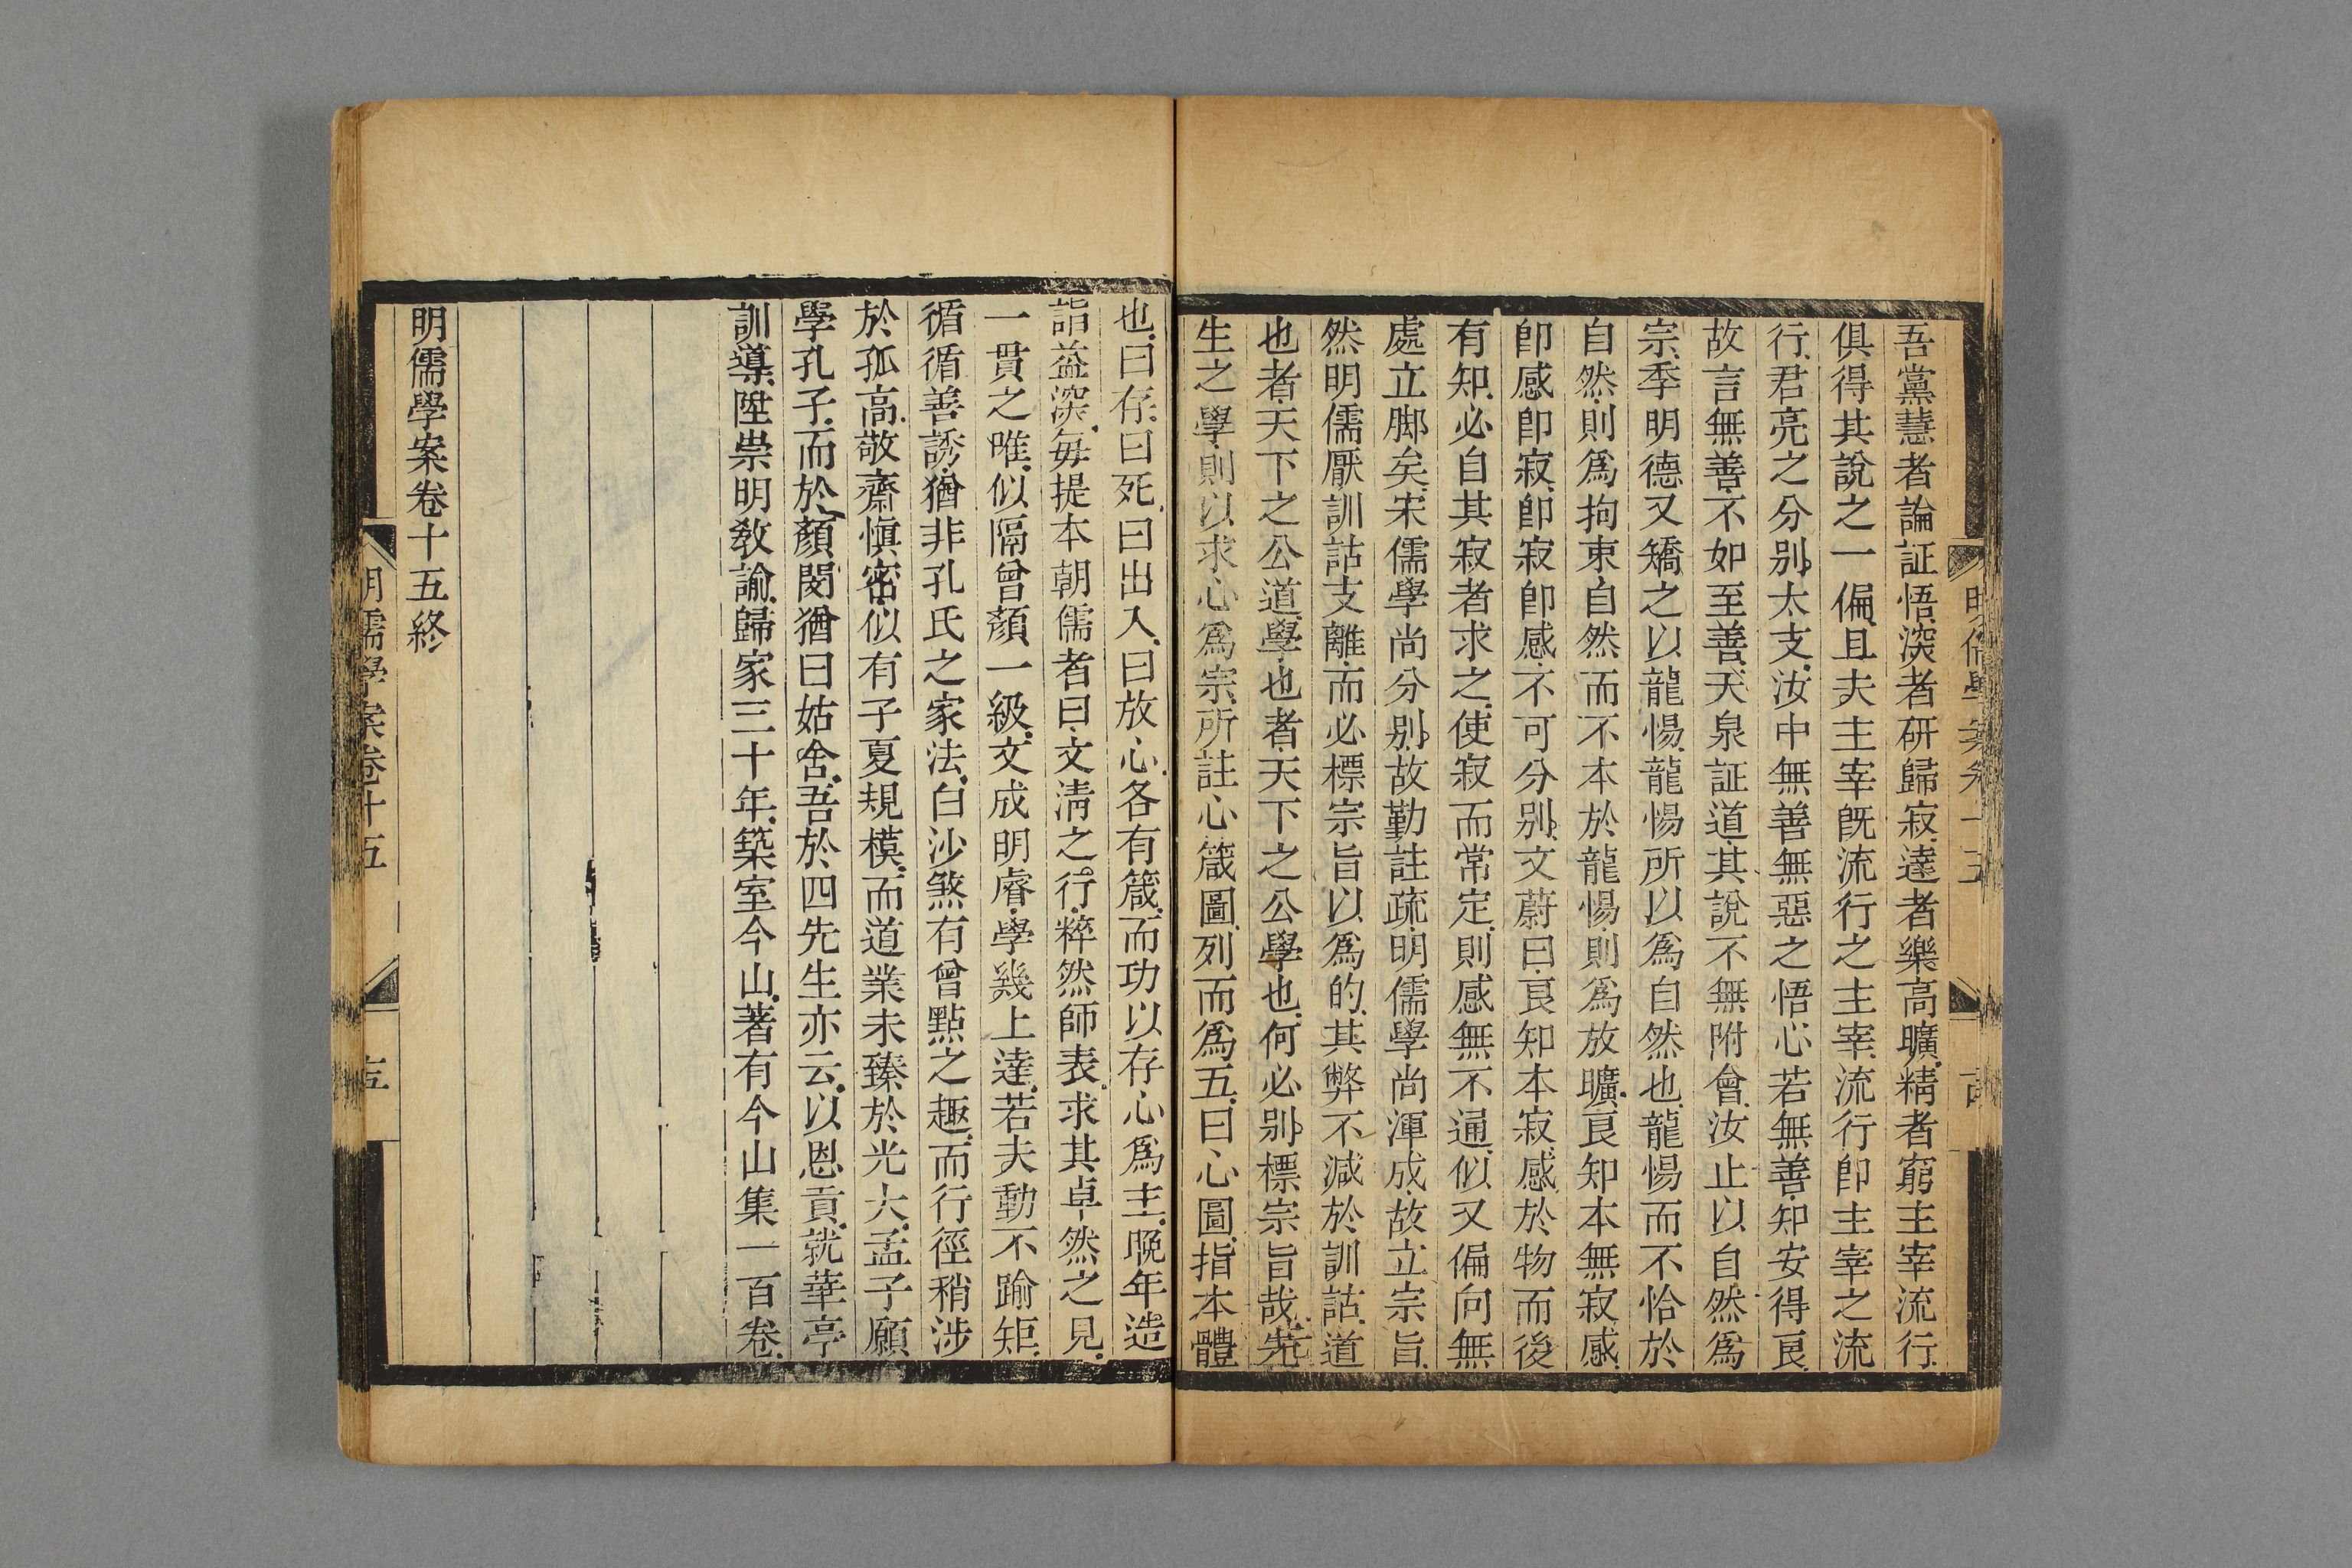 吾黨慧者論証悟、深者研歸寂、達者樂高曠、精者窮主宰流行、
俱得其說之一偏、且夫主宰旣流行之主宰、流行卽主宰之流
行、君亮之分別太支、汝中無善無惡之悟、心若無善、知安得良、
故言無善、不如至善、天泉証道、其說不無附會、汝止以自然爲
宗、季明德又矯之以龍惕、龍惕所以爲自然也、龍惕而不恰於
自然、則爲拘束、自然而不本於龍惕、則爲放曠、良知本無寂感、
卽感卽寂、卽寂卽感、不可分別、文蔚曰、良知本寂、感於物而後
有知、必自其寂者求之、使寂而常定、則感無不通、似又偏向無
處立脚矣、宋儒學尚分別、故勤註疏、明儒學尚渾成、故立宗旨、
然明儒厭訓詁支離、而必標宗旨以爲的、其弊不減於訓詁、道
也者、天下之公道、學也者、天下之公學也、何必別標宗旨哉、先
生之學、則以求心爲宗、所註心箴圖、列而爲五、曰心圖、指本體
也、曰存、曰死、曰出入、曰放心、各有箴、而功以存心爲主、晚年造
詣益深、每提本朝儒者曰、文淸之行、粹然師表、求其卓然之見、
一貫之唯、似隔曾顏一級、文成明睿、學幾上達、若夫動不踰矩、
循循善誘、猶非孔氏之家法、白沙煞有曾點之趣、而行徑稍涉
於孤高、敬齋愼密、似有子夏規模、而道業未臻於光大、孟子願
學孔子、而於顏閔猶曰姑舍、吾於四先生亦云、以恩貢、就華亭
訓導、陞崇明敎諭、歸家三十年、築室今山、著有今山集一百卷、
明儒學案卷十五終
明儒學案卷十五